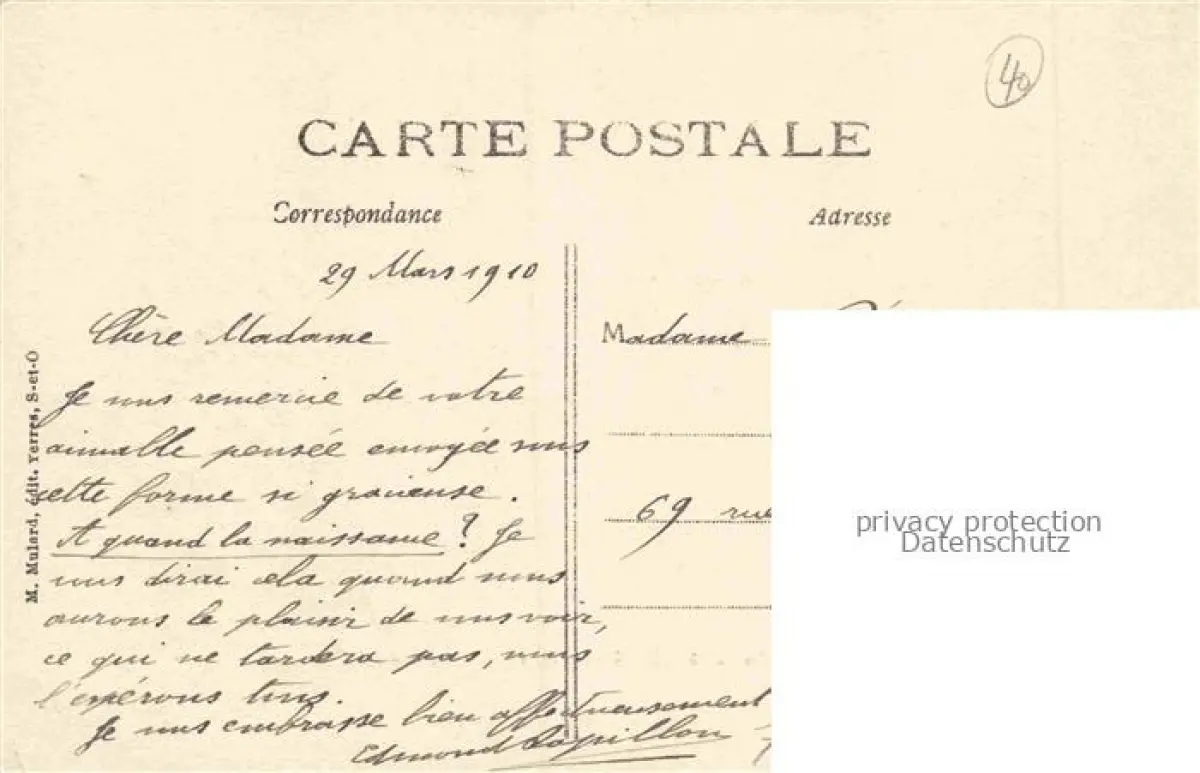 40
CARTE POSTALE
Correspondance
Adresse
29 Mars 1910
Chère Madame
Je vous remercie de votre
aimable pensée envoyée sous
cette forme si gracieuse.
A quand la naissance ? Je
vous dirai cela quand nous
aurons le plaisir de vous voir,
ce qui ne tardera pas, nous
l'espérons tous.
Je vous embrasse bien affectueusement
Edmond Papillon
M. Mulard, édit. Yerres, S-et-O
Madame
69 rue
privacy protection
Datenschutz